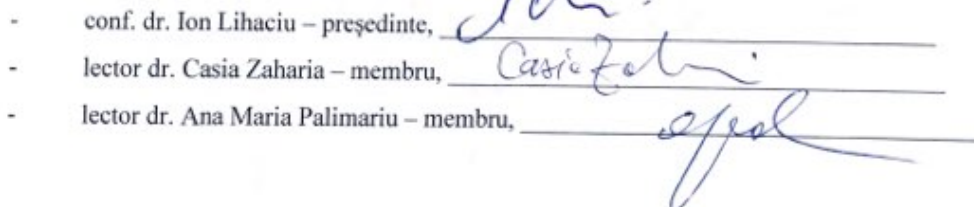 - conf. dr. Ion Lihaciu – președinte,
- lector dr. Casia Zaharia – membru, Casia
- lector dr. Ana Maria Palimariu – membru,